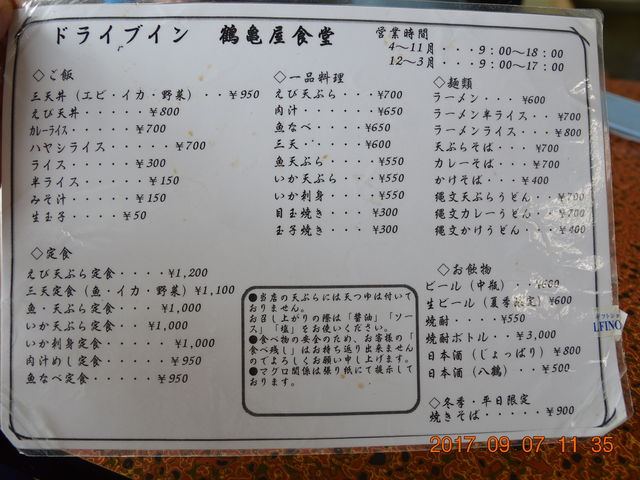 ドライブイン 鶴亀屋食堂
営業時間
4～11月・・・9：00～18：00
12～3月・・・9：00～17：00
◇ご飯
三天丼（エビ・イカ・野菜）・・￥950
えび天丼・・・・￥800
カレーライス・・・・￥700
ハヤシライス・・・・￥700
ライス・・・・￥300
半ライス・・・・￥150
みそ汁・・・・￥150
生玉子・・・・￥50
◇定食
えび天ぷら定食・・・・¥1,200
三天定食（魚・イカ・野菜）¥1,100
魚・天ぷら定食・・・・¥1,000
いか天ぷら定食・・・・¥1,000
いか刺身定食・・・・¥1,000
肉汁めし定食・・・・￥950
魚なべ定食・・・￥950
◇一品料理
えび天ぷら・・¥700
肉汁・・・・¥650
魚なべ・・・¥650
三天・・・・¥600
魚天ぷら・・・¥550
いか天ぷら・・・¥550
いか刺身・・・¥550
目玉焼き・・・¥300
玉子焼き・・・¥300
●当店の天ぷらには天つゆは付いて
おりません。
お召し上がりの際は「醤油」「ソー
ス」「塩」をお使いください。
●食べ物の安全のため、お客様の「
食べ残し」はお持ち返り出来ません
のでよろしくお願い申し上げます。
●マグロ関係は張り紙にて提示して
おります。
◇麺類
ラーメン・・・¥600
ラーメン半ライス・・¥700
ラーメンライス・・・¥800
天ぷらそば・・・¥700
カレーそば・・・¥700
かけそば・・￥400
縄文天ぷらうどん・・¥700
縄文カレーうどん・・¥700
縄文かけうどん・・・¥400
◇お飲物
ビール（中瓶）・・¥600
生ビール（夏季限定）¥600
焼酎・・・・¥550
焼酎ボトル・・￥3,000
日本酒（じょっぱり）￥800
日本酒（八鶴）・・￥500
◇冬季・平日限定
焼きそば・・・・・￥900
LFINO
2017 09 07 11 35